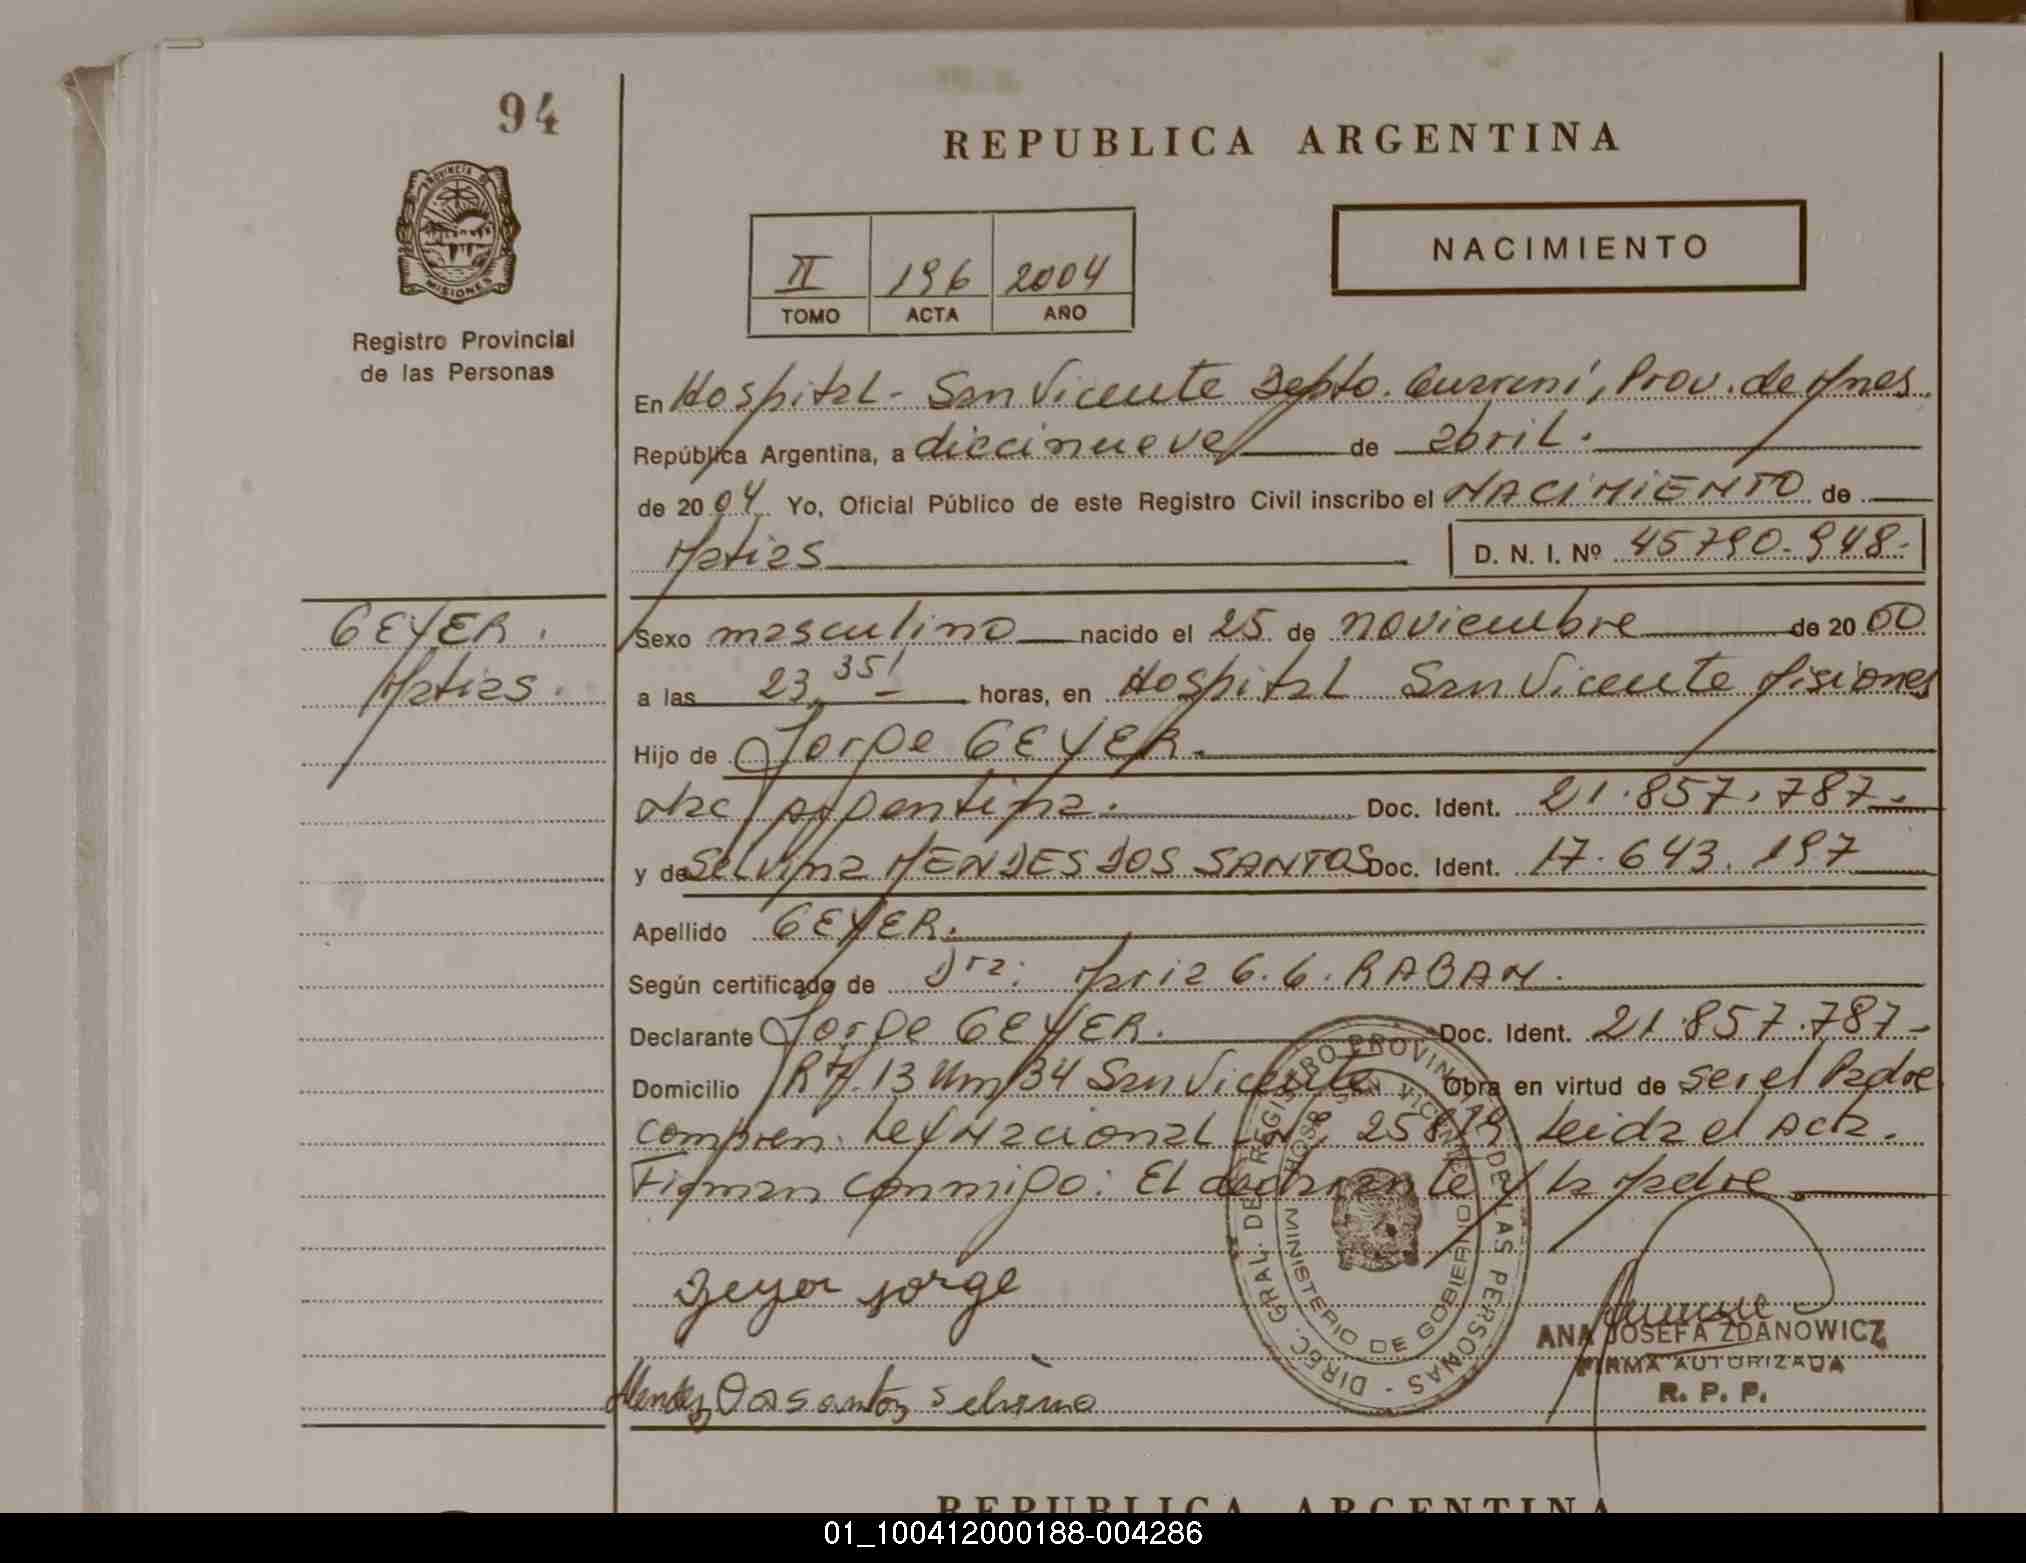 94
REPUBLICA ARGENTINA
PROVINCIA DE
MISIONES
Registro Provincial
de las Personas
II 196 2004
TOMO ACTA AÑO
NACIMIENTO
En Hospital - San Vicente Depto. Guarani, Prov. de Mnes.
República Argentina, a diecinueve de abril.
de 2004 Yo, Oficial Público de este Registro Civil inscribo el NACIMIENTO de
Matias D. N. I. Nº 45790.948.
GEYER.
Matias.
Sexo masculino nacido el 25 de noviembre de 2000
a las 23,35' horas, en Hospital San Vicente Misiones
Hijo de Jorge GEYER.
Nac/ argentina. Doc. Ident. 21.857.787.
y de Selvina MENDES DOS SANTOS Doc. Ident. 17.643.197
Apellido GEYER.
Según certificado de Dra. Maria G. G. RABAN.
Declarante Jorge GEYER. Doc. Ident. 21.857.787-
Domicilio 13 Km 34 San Vicente Obra en virtud de ser el Padre
Compren. Ley Nacional Nº 25819 Leida el Acta.
Firman conmigo: El declarante y la Madre.
DIREC. GRAL. DE REGISTRO PROVINCIAL DE LAS PERSONAS -
MINISTERIO DE GOBIERNO
SAN VICENTE
Geyer Jorge
ANA JOSEFA ZDANOWICZ
FIRMA AUTORIZADA
R. P. P.
Mendez Dos santos Selvina
REPUBLICA ARGENTINA
01_100412000188-004286